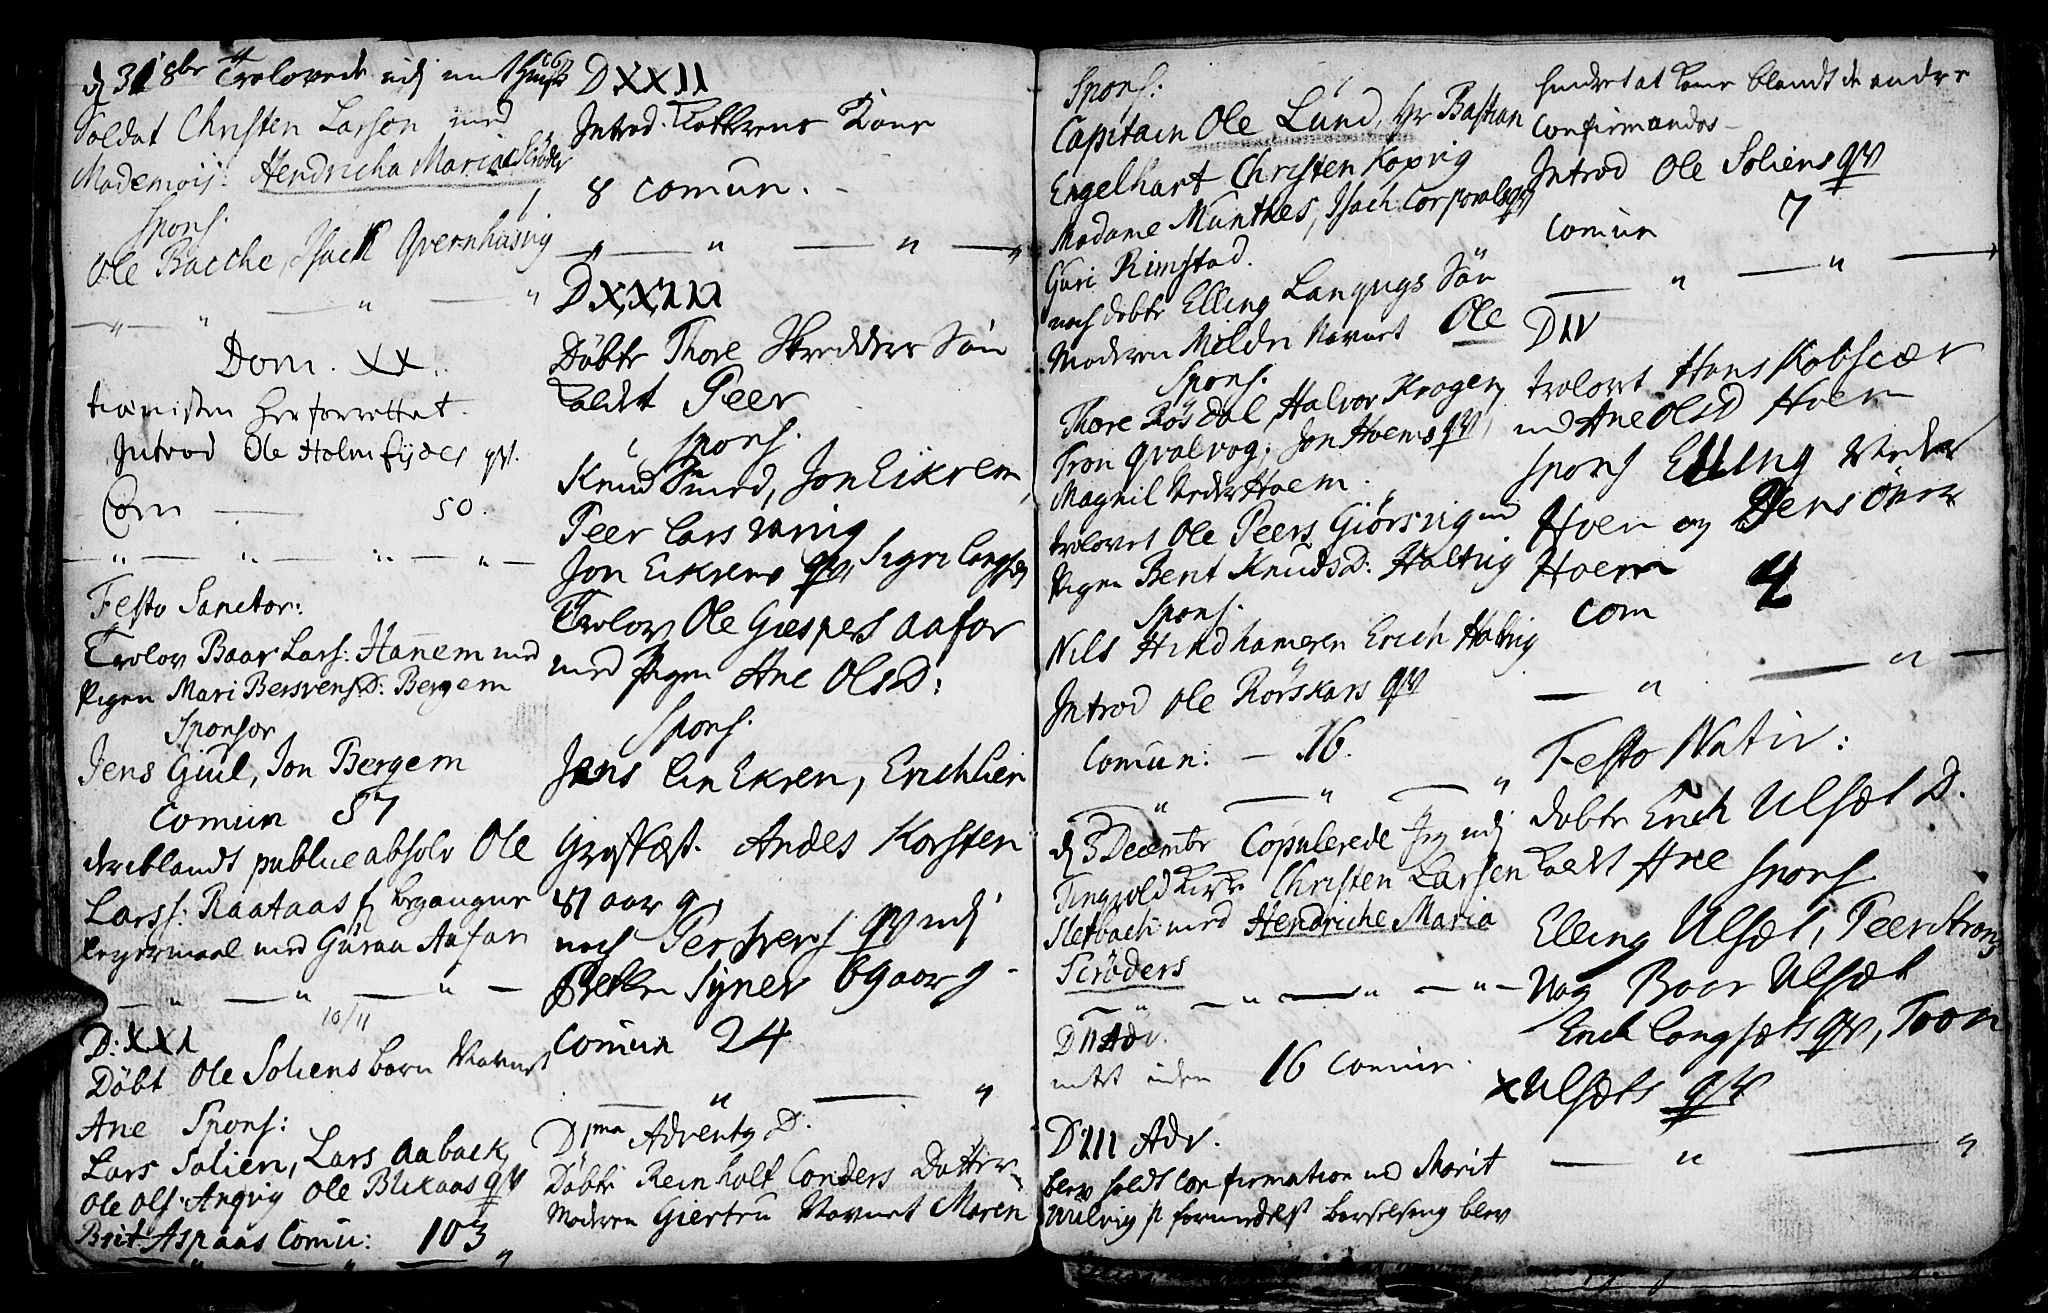 d 31 8br Trolovede udj mit Huus
Soldat Christen Larson med
Mademois: Hendricha Maria Scröder
Spons.
Ole Bacche, Isack Qvernhusvig
Dom. XX.
herforrettet.
Introd Ole Holmeijdes qv.
Com 50.
Festo Sanctor:
Trolov Baar Lars: Hannem med
Pigen Mari BersvensD: Bergem
Sponsor
Jens Giul, Jon Bergem
Comun 57
deriblandt publice absolv Ole
Larss: Raataas f begangne
Legermaal med Guraa Aafar
10/11
D: XXI
Döbt Ole Soliens barn Navnet
Ane Spons:
Lars Solien, Lars Aaback,
Ole Ols: Angvig Ole Blikaas qv
Brit Aspaas Comu: 103
D XXII
Introd. Klokkrens Kone
8 comun.
D XXIII
Döbte Thore Skredders Sön
kaldet Peer
Spons.
Knud Smed, Jon Eikrem,
Peer Lars
Jon Eikrems qv, Sigri
Trolov Ole Giespers Aafar
med Pigen Ane OlsD:
Spons.
Jens Lin Ekren, Erich Lien
Grafkæst. Andes Korsten
81 aar g.
noch qv udj
Syner 69 aar g
Comun 24
D 1ma Advents D:
Döbte Reinholt Conders Datter
Moderen Giertru Navnet Maren
Spons:
Capitain Ole Lund, Hr Bastian
Engelhart Christen Koxvig
Madame Munthes, Isach Corporals qv
Guri Rimstad.
noch dobte Elling Langvgs Sön
Moderen Mildri Navnet Ole
Spons.
Thore Rösdal, Halvor Kragen,
Tron Qvalvog, Jon Hoems qv,
Magnil Neder Hoem.
trolovet Ole Peers Giörsvig md
Pigen Berit KnudsD: Holtvig
Spons.
Nils Hindhameren Erich Holtvig
Introd Ole Rörskars qv
Comun: 16.
d 3 Decembr Copulerede Jeg udj
Tingvold Kirke Christen Larsen
Sletbach med Hendriche Maria
Scröders
D II Adv.
intet uden 16 Comun.
D: III Adv.
blev holdt Confirmation md Marit
Ulvig som formedelst barselseng blev
hindret at kome blandt de andre
Confirmandos
Introd Ole Soliens qv
Comun 7
D IV
trolovet Hans Kobscær
md Ane OlsD Hoem
Spons Elling Neder
Hoem og Jens Över
Hoem
Com 4
Festo Nativ:
dobte Erich Ulsæt D.
kaldt Ane Spons.
Elling Ulsæt, Peer Strong
Baar Ulsæt
Erich Langsæts qv, Tron
x Ulsæts qv